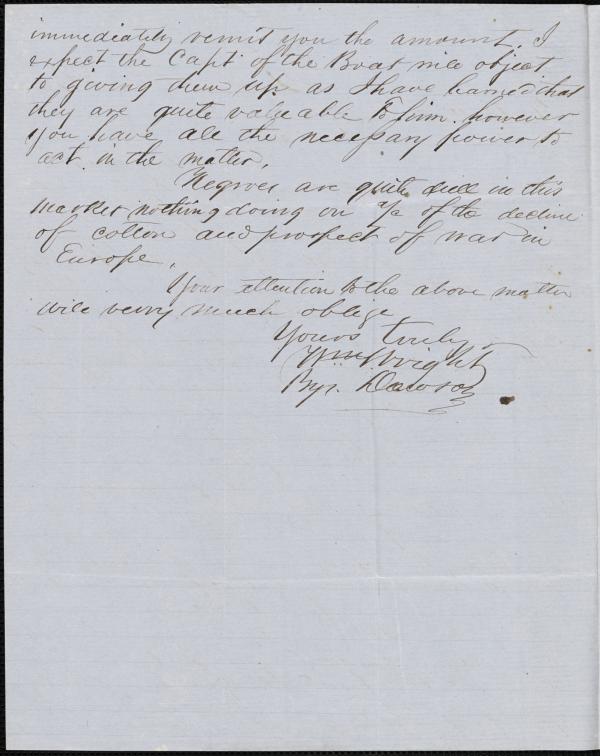 immediately remit you the amount. I
expect the Capt of the Boat will object
to giving them up as I have learned that
they are quite valuable to him. however
you have all the necessary power to
act in the matter.
Negroes are quite dull in this
market nothing doing on a/c of the decline
of cotton and prospect of war in
Europe.
Your attention to the above matter
will verry much oblige
Yours truly
Wm Wright
Dawson